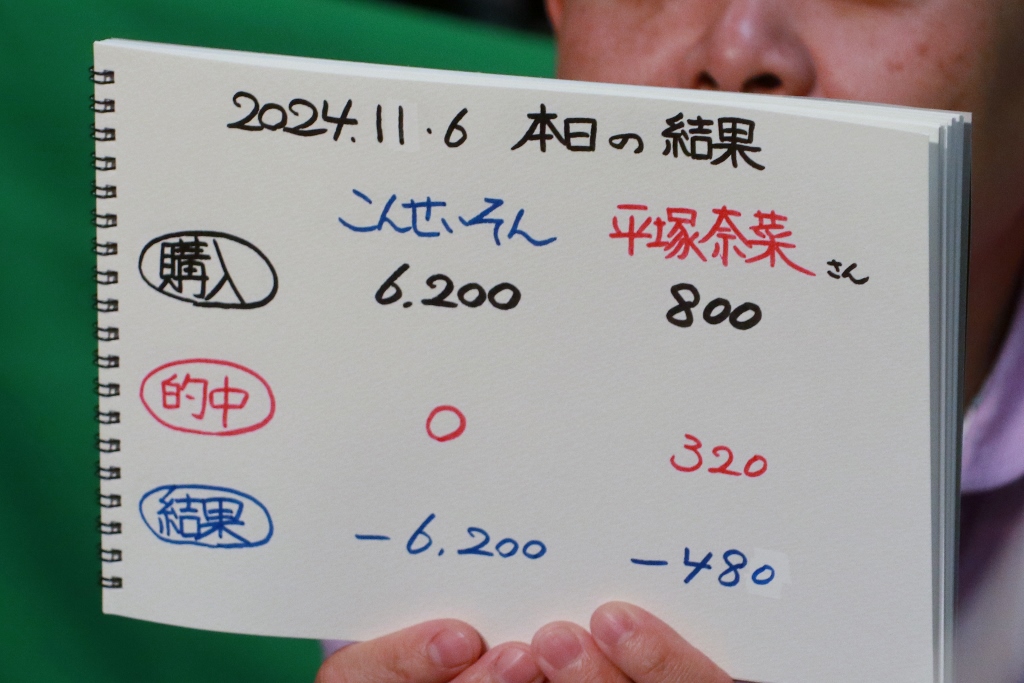 2024.11.6 本日の結果
こんせいそん 平塚奈菜さん
購入 6.200 800
的中 0 320
結果 -6.200 -480